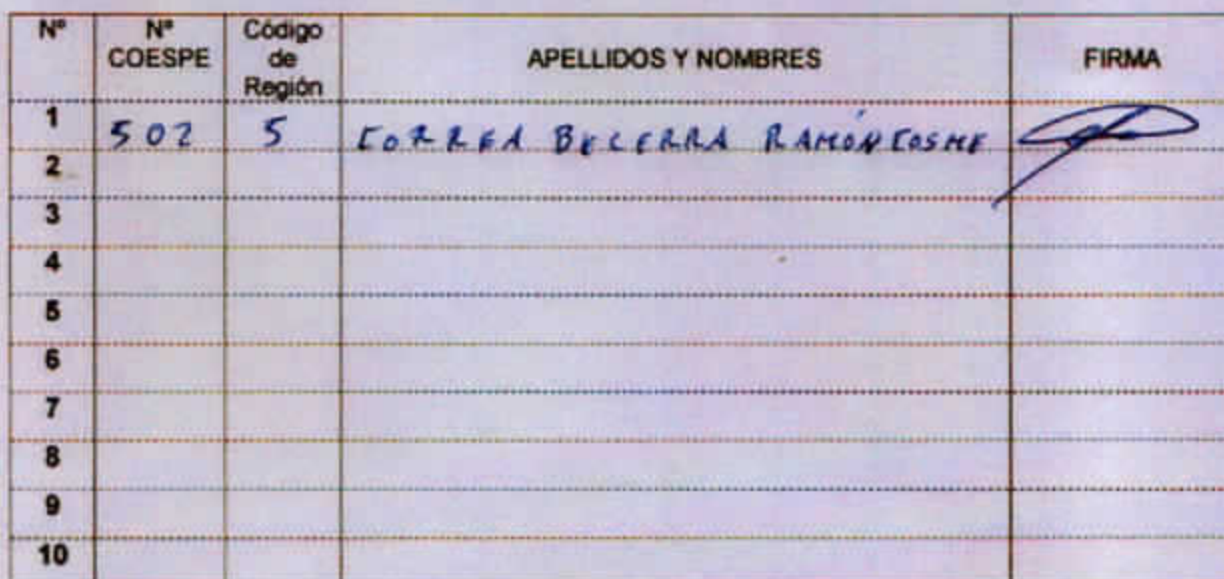 Nº Nº COESPE Código de Región APELLIDOS Y NOMBRES FIRMA
1 502 5 CORREA BECERRA RAMÓN COSME
2
3
4
5
6
7
8
9
10